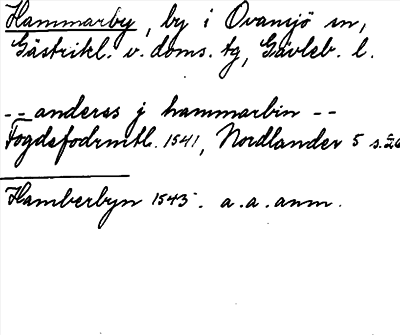 Hammarby, by i Ovansjö sn,
Gästrikl. v. doms. tg, Gävleb. l.
-- anderss j hammarbin --
Fogdefodrmtl. 1541, Nordlander 5 s.26
Hamberbyn 1543. a.a. anm.